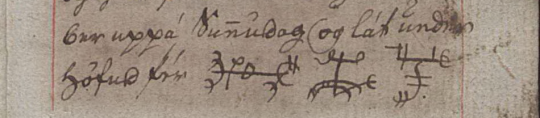 ber uppá Sun̄udag og lát under
höfud þér